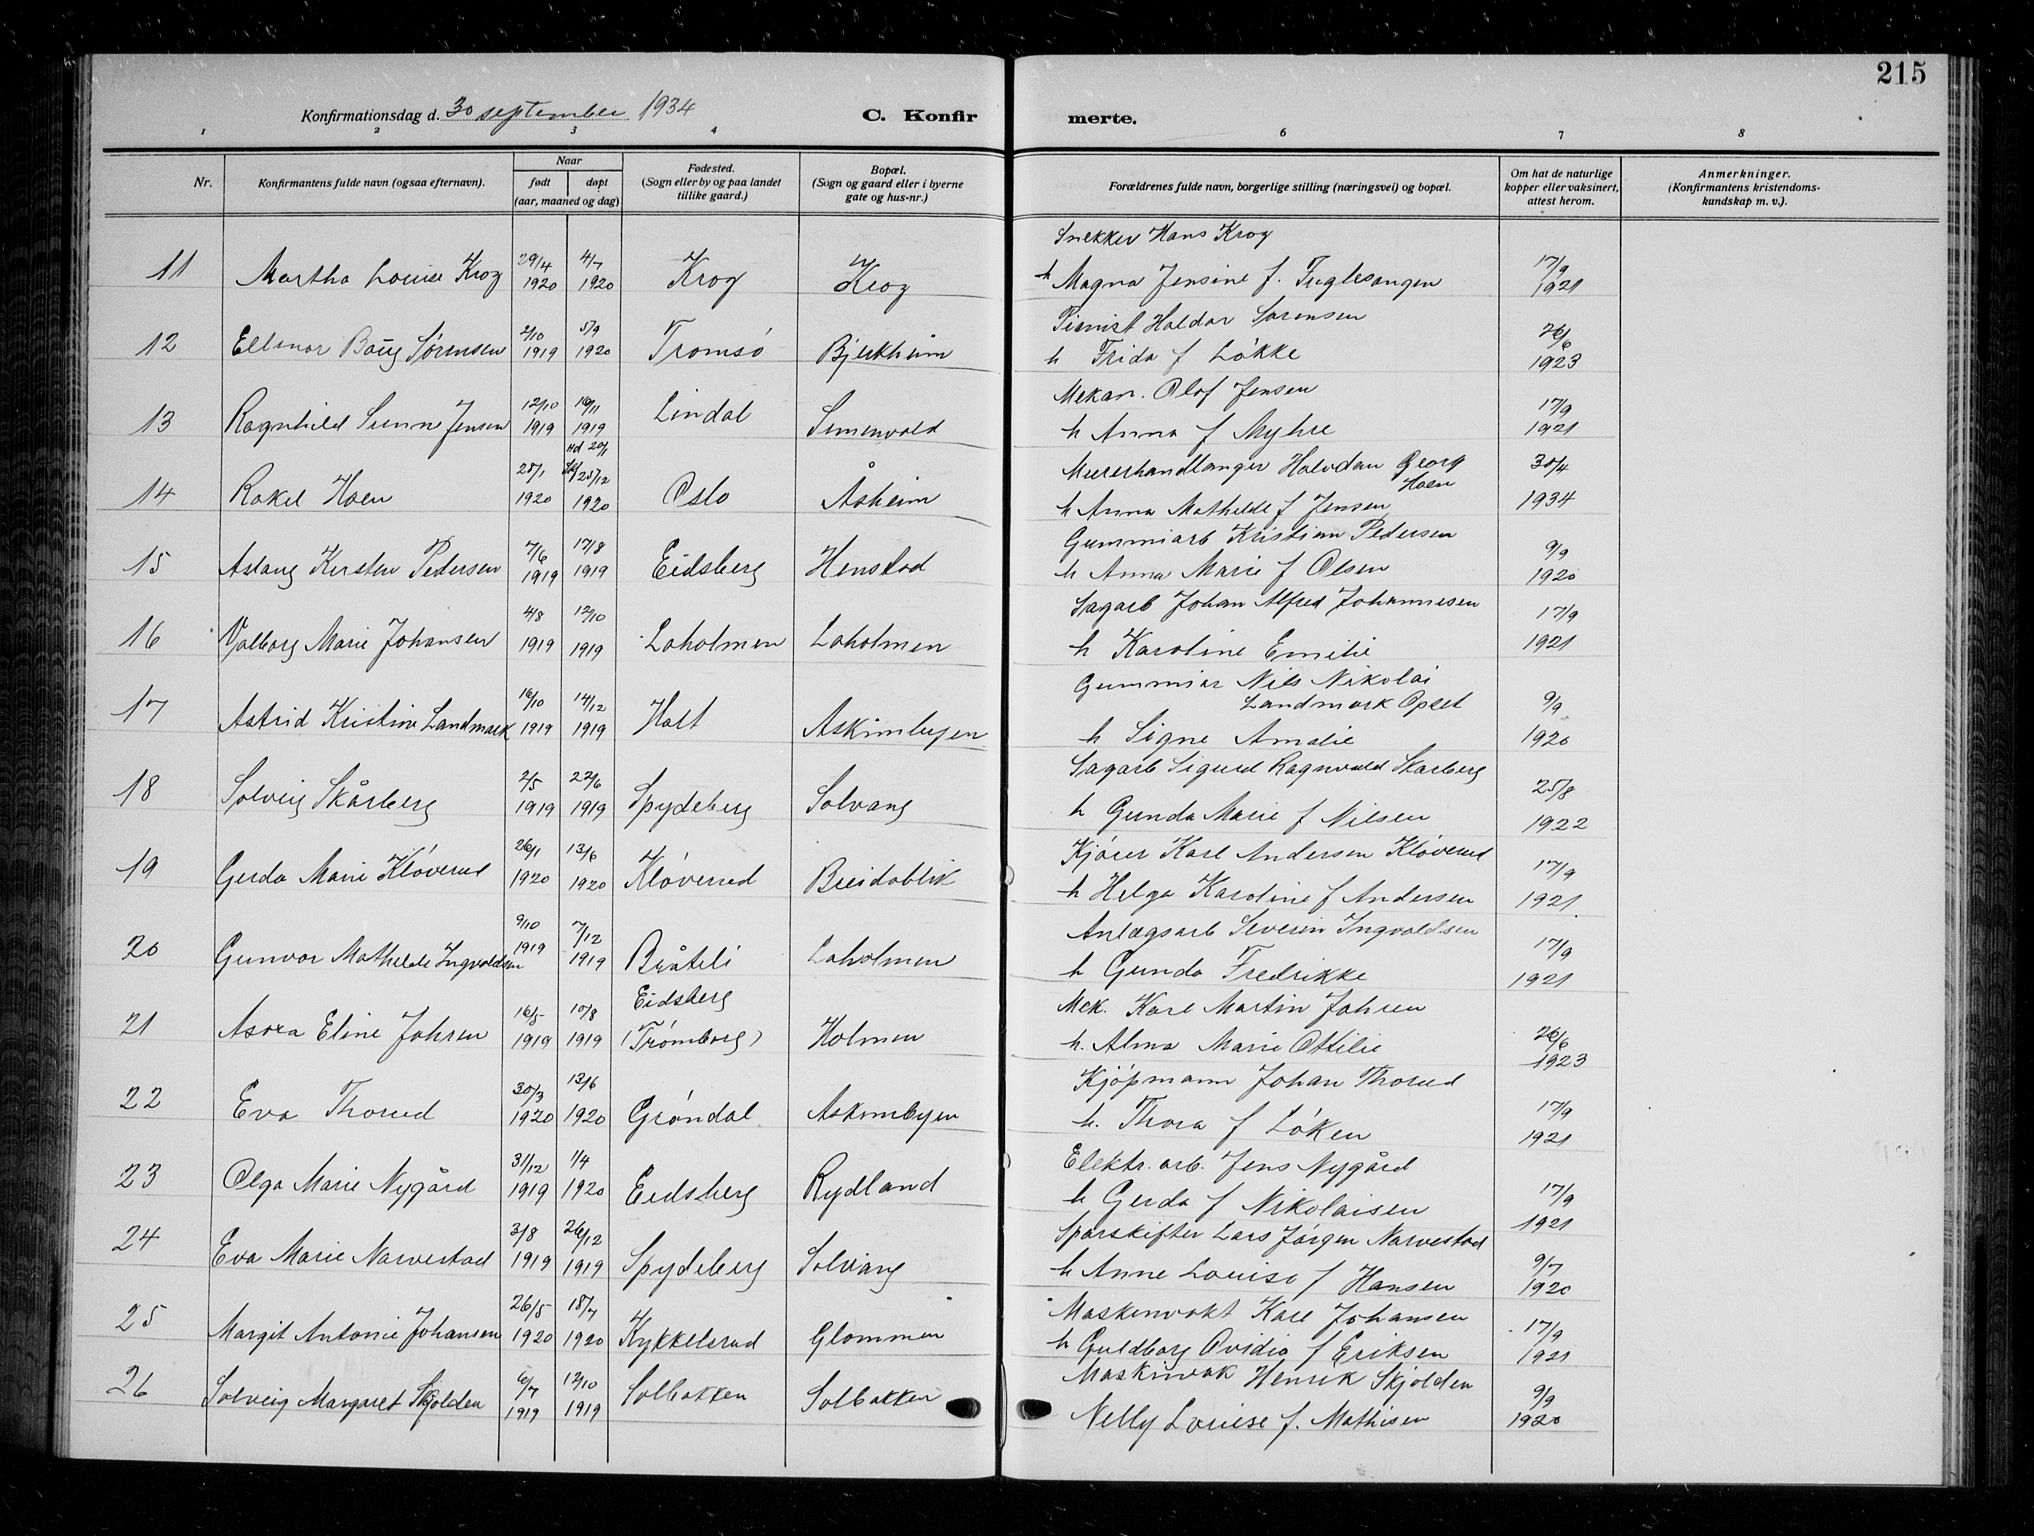 215
Konfirmationsdag d. 30 september 1934
C. Konfirmerte.
1 2 3 4 6 7 8
Nr.
Konfirmantens fulde navn (ogsaa efternavn).
Naar
født døpt
(aar, maaned og dag)
Fødested.
(Sogn eller by og paa landet
tillike gaard.)
Bopæl.
(Sogn og gaard eller i byerne
gate og hus-nr.)
Forældrenes fulde navn, borgerlige stilling (næringsvei) og bopæl.
Om hat de naturlige
kopper eller vaksinert,
attest herom.
Anmerkninger.
(Konfirmantens kristendoms-
kundskap m. v.).
Snekker Hans Krog
11 Martha Louise Krog 29/4 1920 4/7 1920 Krog Krog h Magna Jensine f. Fuglesangen 17/9 1921
Haldor Sørensen
12 Ellinor Sørensen 2/10 1919 5/9 1920 Tromsø Bjerkheim h Frida f Løkke 26/6 1923
Mekan. Olof Jensen
13 Ragnhild Sunne Jensen 12/10 1919 16/11 1919 Lindal h Anna f Myhre 17/9 1921
Murerhandlanger Halvdan Georg Hoen
14 Rakel Hoen 28/1 1920 1920 Oslo Åsheim h Anna Mathilde f Jensen 30/4 1934
Gummiarb Kristian Pedersen
15 Aslaug Kersten Pedersen 7/6 1919 17/8 1919 Eidsberg Henstad h Anna Marie f Olsen 9/9 1920
Sagarb Johan Alfred Johannesen
16 Valborg Marie Johansen 4/8 1919 12/10 1919 Laholmen Laholmen h Karoline Emilie 17/9 1921
Gummiar Nils Nikolai
Landmark Opset
17 Astrid Kristine Landmark 16/10 1919 14/12 1919 Holt Askimbyen h Signe Amalie 9/9 1920
Sagarb Sigurd Ragnvald Skarberg
18 Solveig Skårberg 2/5 1919 22/6 1919 Spydeberg Solvang h Gunda Marie f Nilsen 25/8 1922
Kjører Karl Andersen Kløverud
19 Gerda Marie Kløverud 26/1 1920 13/6 1920 Kløverud Breidablik h Helga Karoline f Andersen 17/9 1921
Anlægsarb Severin Ingvaldsen
20 Gunvor Mathilde Ingvaldsen 9/10 1919 7/12 1919 Bråteli Laholmen h Gunda Fredrikke 17/9 1921
Mek. Karl Martin Johren
21 Asora Eline Johren 16/5 1919 10/8 1919 Eidsberg (Trømborg) Holmen h. Alma Marie Ottilie 26/6 1923
Kjøpmann Johan Thorud
22 Eva Thorud 30/3 1920 13/6 1920 Grøndal Askimbyen h. Thora f Løken 17/9 1921
Elektr. arb. Jens Nygård
23 Olga Marie Nygård 31/12 1919 1/4 1920 Eidsberg Rydland h Gerda f Nikolaisen 17/9 1921
Sporskifter Lars Jørgen Narvestad
24 Eva Marie Narvestad 3/8 1919 26/12 1919 Spydeberg Solvang h Anne Louise f Hansen 9/7 1920
Maskinvakt Karl Johansen
25 Margit Antonie Johansen 26/5 1920 18/7 1920 Kykkelsrud Glommen h Guldborg Ovidia f Eriksen 17/9 1921
Maskinvak Henrik Skjolden
26 Solveig Margaret Skjolden 6/7 1919 12/10 1919 Solbakken Solbakken Nelly Louise f. Mathisen 9/9 1920